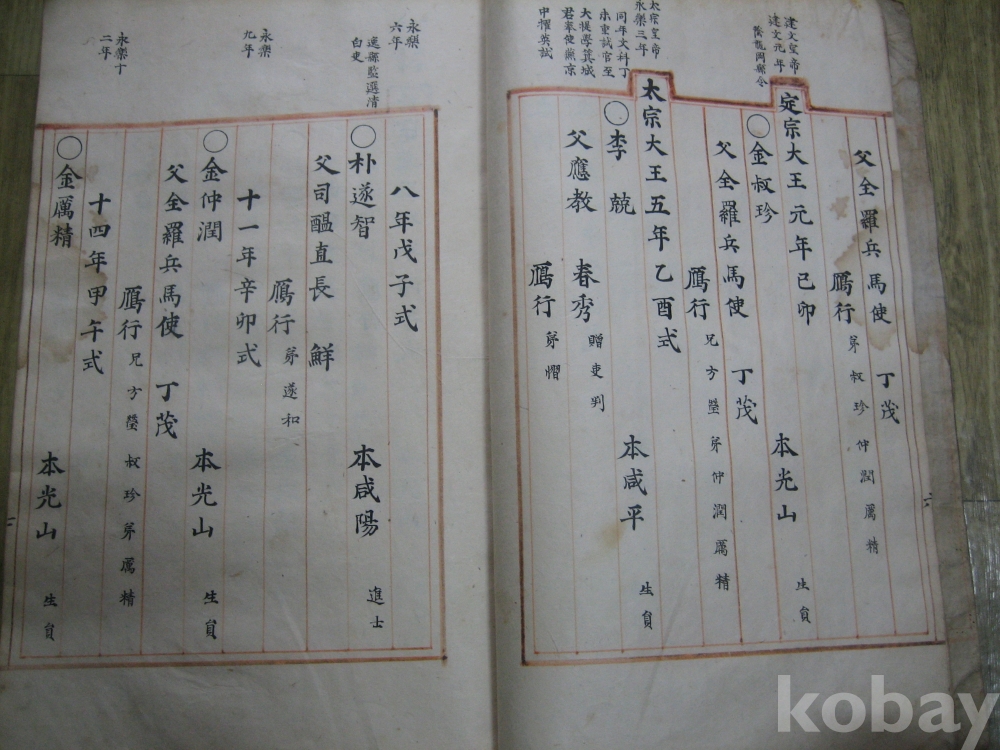 建文皇帝
建文元年
太宗皇帝
永樂三年
同年文科丁
亥重試官至
大提學箕城
君奉使燕京
中擢英試
父全羅兵馬使 丁茂
鴈行 弟叔珍 仲潤 厲精
定宗大王元年己卯
○金叔珍 本光山 生員
父全羅兵馬使 丁茂
鴈行 兄方瑩 弟仲潤 厲精
太宗大王五年乙酉式
○李兢 本咸平 生員
父應教 春秀 贈吏判
鴈行 弟慴
六
永樂
六年
逸縣監選清
白吏
永樂
九年
永樂十
二年
八年戊子式
○朴遂智 本咸陽 進士
父司醞直長 鮮
鴈行 弟遂和
十一年辛卯式
○金仲潤 本光山 生員
父全羅兵馬使 丁茂
鴈行 兄方瑩 叔珍 弟厲精
十四年甲午式
○金厲精 本光山 生員
七
kobay